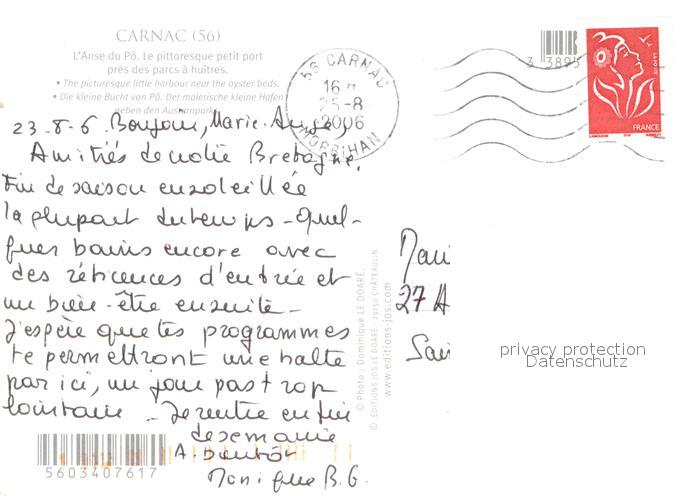 CARNAC (56)
L'Anse du Pô. Le pittoresque petit port
près des parcs à huîtres.
• The picturesque little harbour near the oyster beds.
• Die kleine Bucht von Pô. Der malerische kleine Hafen
neben den Austernparks.
56 CARNAC
16 H
25-8
2006
MORBIHAN
3 3895
LAMOUCHE ITVF
FRANCE
23-8-6. Bonjour, Marie-Ange,
Amitiés de notre Bretagne.
Fin de saison ensoleillée
la plupart du temps - Quel-
ques bains encore avec
des réticences d'entrée et
un bien-être ensuite -
J'espère que tes programmes
te permettront une halte
par ici, un jour pas trop
lointain - Je rentre en fin
de semaine
A bientôt
Monique B.G.
27 A
© Photo : Dominique LE DOARÉ.
© EDITIONS JOS LE DOARÉ - 29150 CHÂTEAULIN
www.editions-jos.com
privacy protection
Datenschutz
5603407617